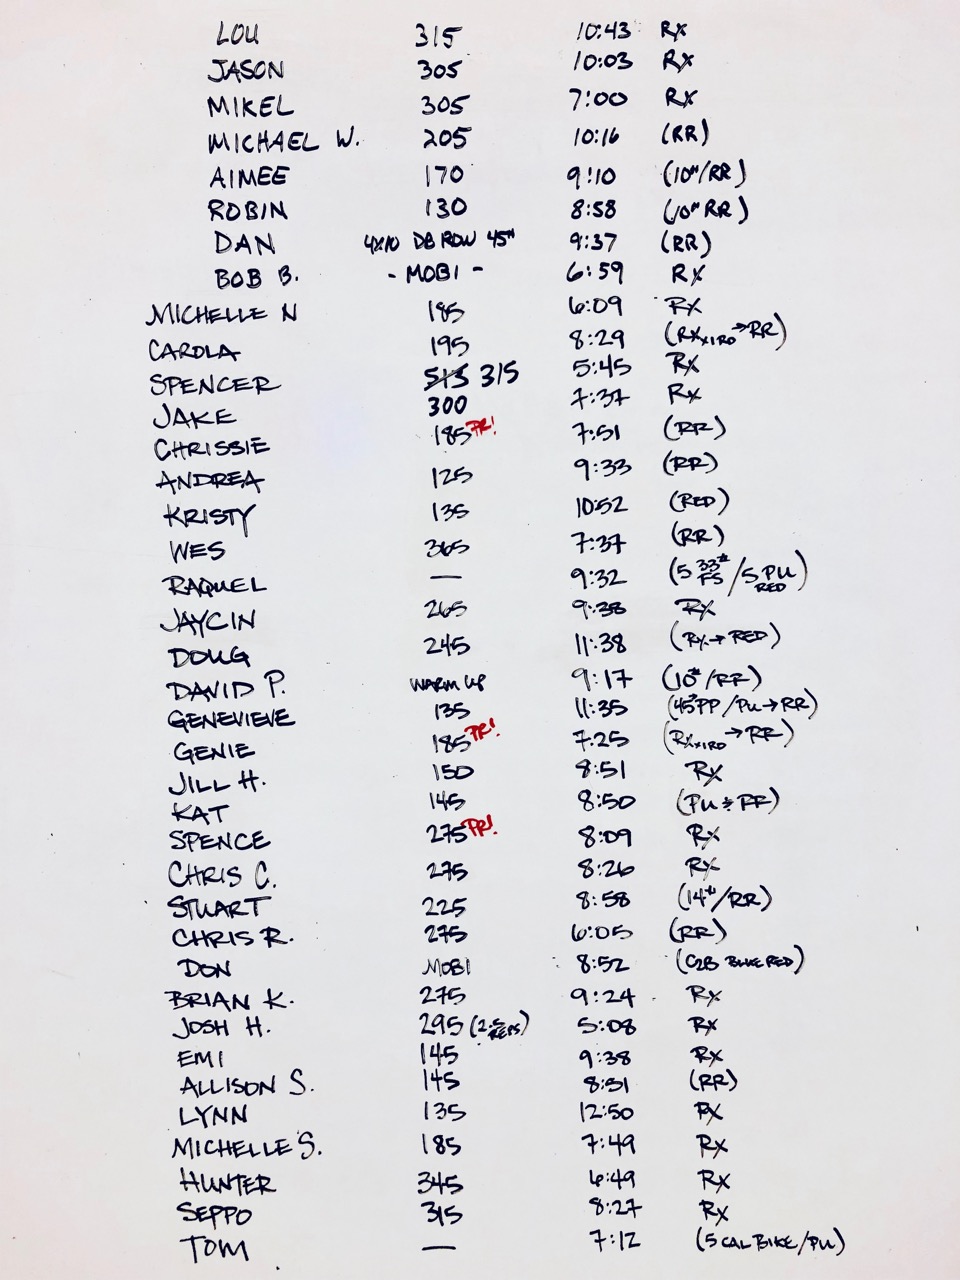 LOU 315 10:43 RX
JASON 305 10:03 RX
MIKEL 305 7:00 RX
MICHAEL W. 205 10:16 (RR)
AIMEE 170 9:10 (10#/RR)
ROBIN 130 8:58 (10# RR)
DAN 4X10 DB ROW 45# 9:37 (RR)
BOB B. - MOBI - 6:59 RX
MICHELLE N 185 6:09 RX
CAROLA 195 8:29 (RXx1RD→RR)
SPENCER 315 5:45 RX
JAKE 300 7:37 RX
CHRISSIE 185 PR! 7:51 (RR)
ANDREA 125 9:33 (RR)
KRISTY 135 10:52 (RED)
WES 365 7:37 (RR)
RAQUEL — 9:32 (5 33# FS / 5 PU RED)
JAYCIN 265 9:38 RX
DOUG 245 11:38 (RX→RED)
DAVID P. WARM UP 9:17 (10#/RR)
GENEVIEVE 135 11:35 (45#PP/PU→RR)
GENIE 185 PR! 7:25 (RXx1RD→RR)
JILL H. 150 8:51 RX
KAT 145 8:50 (PU RR)
SPENCE 275 PR! 8:09 RX
CHRIS C. 275 8:26 RX
STUART 225 8:58 (14#/RR)
CHRIS R. 275 6:05 (RR)
DON MOBI 8:52 (C2B BLUE RED)
BRIAN K. 275 9:24 RX
JOSH H. 295 (REPS) 5:08 RX
EMI 145 9:38 RX
ALLISON S. 145 8:51 (RR)
LYNN 135 12:50 RX
MICHELLE S. 185 7:49 RX
HUNTER 345 6:49 RX
SEPPO 315 8:27 RX
TOM — 7:12 (5 CAL BIKE/PU)